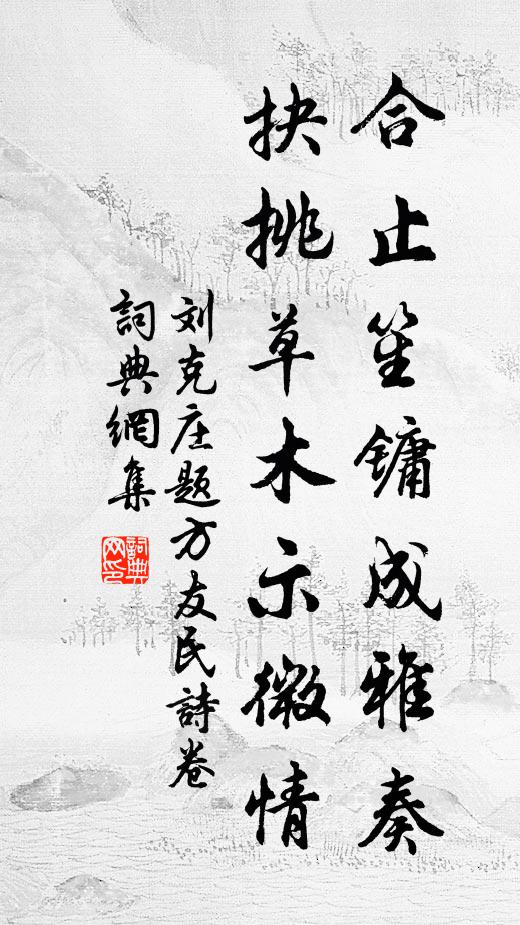 合止笙鏞成雅奏
抉挑草木示微情
刘克庄题方友民詩卷
詞典網集
詞典网印